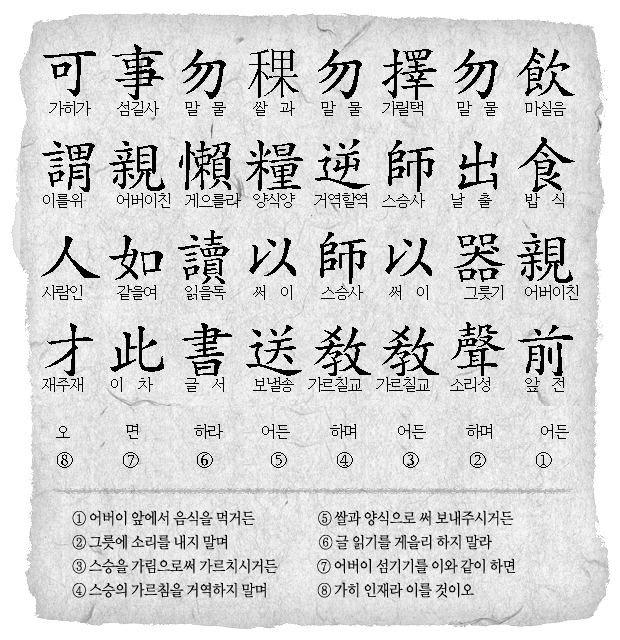 飮 마실음 食 밥 식 親 어버이친 前 앞 전 어든 ①
勿 말 물 出 날 출 器 그릇기 聲 소리성 하며 ②
擇 가릴택 師 스승사 以 써 이 敎 가르칠교 어든 ③
勿 말 물 逆 거역할역 師 스승사 敎 가르칠교 하며 ④
稞 쌀 과 糧 양식양 以 써 이 送 보낼송 어든 ⑤
勿 말 물 懶 게으를라 讀 읽을독 書 글 서 하라 ⑥
事 섬길사 親 어버이친 如 같을여 此 이 차 면 ⑦
可 가히가 謂 이를위 人 사람인 才 재주재 오 ⑧
① 어버이 앞에서 음식을 먹거든
② 그릇에 소리를 내지 말며
③ 스승을 가림으로써 가르치시거든
④ 스승의 가르침을 거역하지 말며
⑤ 쌀과 양식으로 써 보내주시거든
⑥ 글 읽기를 게을리 하지 말라
⑦ 어버이 섬기기를 이와 같이 하면
⑧ 가히 인재라 이를 것이오